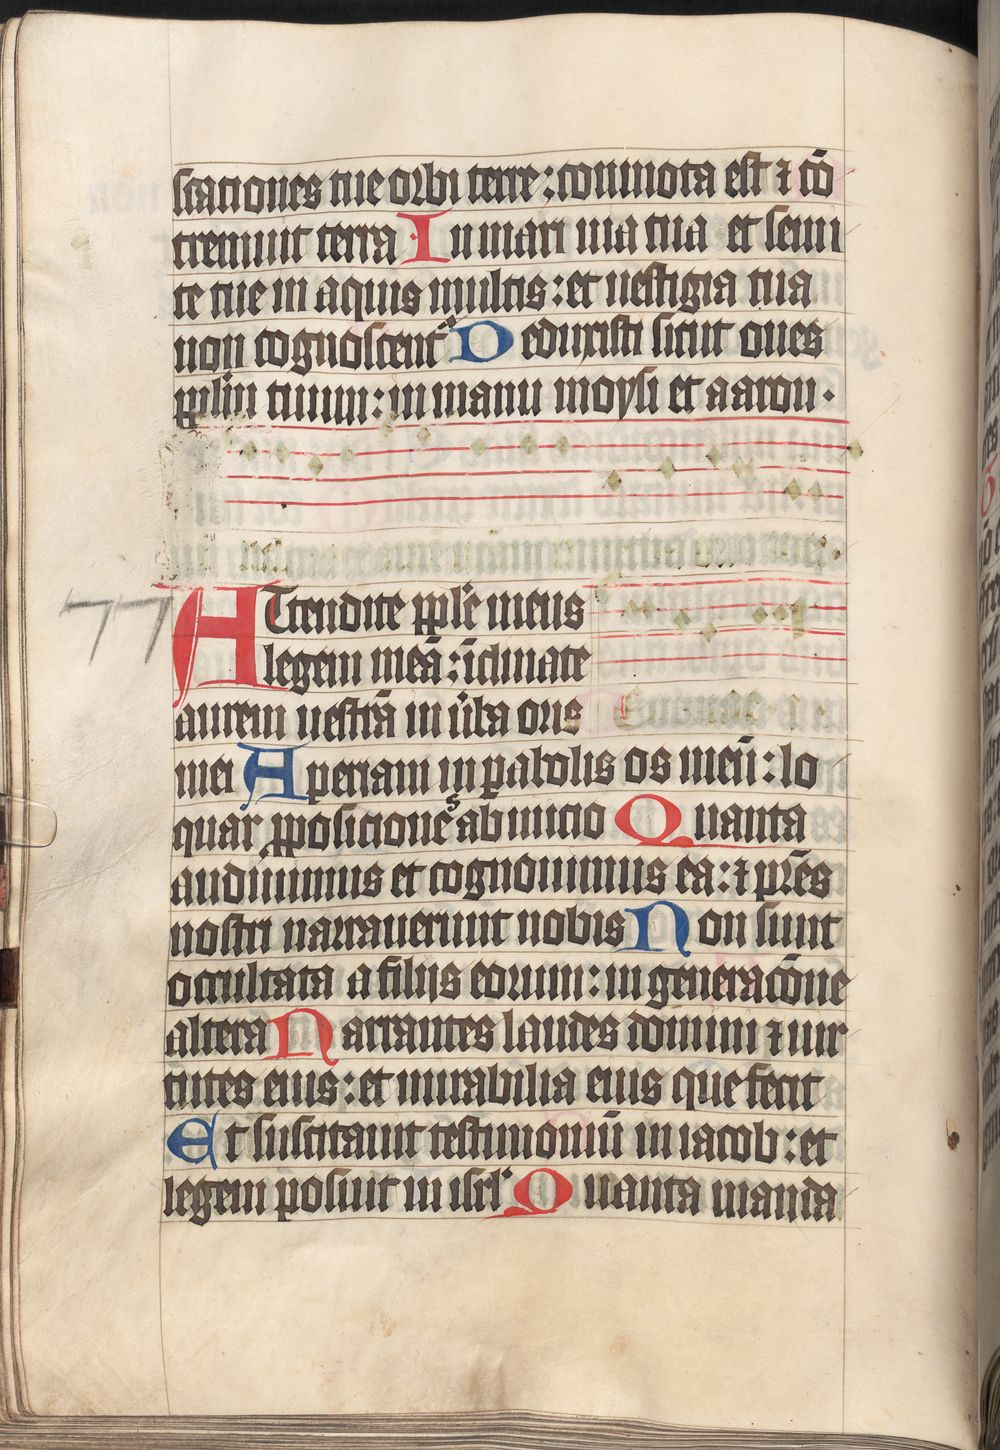 scationes tue orbi terre : commota est ⁊ cō
tremuit terra In mari uia tua et semi
te tue in aquis multis : et uestigia tua
non cognoscent᷑ Deduxisti sicut oues
pplm̄ tuum : in manu moysi et aaron .
77
ATtendite pple meus
legem meā : īclinate
aurem uestrā in ūba oris
mei Aperiam in ꝑabolis os meū : lo
quar ꝓposiciones ab inicio Quanta
audiuimus et cognouimus ea : ⁊ pr̄es
nostri narrauerunt nobis Non sunt
occultata a filijs eorum : in generacōne
altera Narrantes laudes domini ⁊ uir
tutes eius : et mirabilia eius que fecit
Et suscitauit testimoniū in iacob : et
legem posuit in isrl' Quanta manda